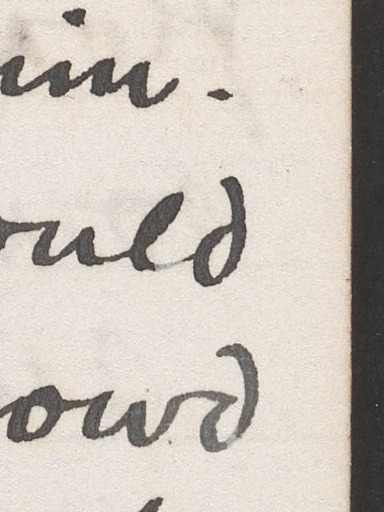 him.
ould
owd